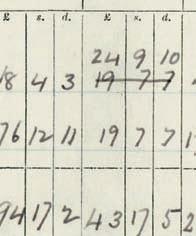 £ s. d. £ s. d.
24 9 10
18 4 3 19 7 7
76 12 11 19 7 7 1
94 17 2 43 17 5 2